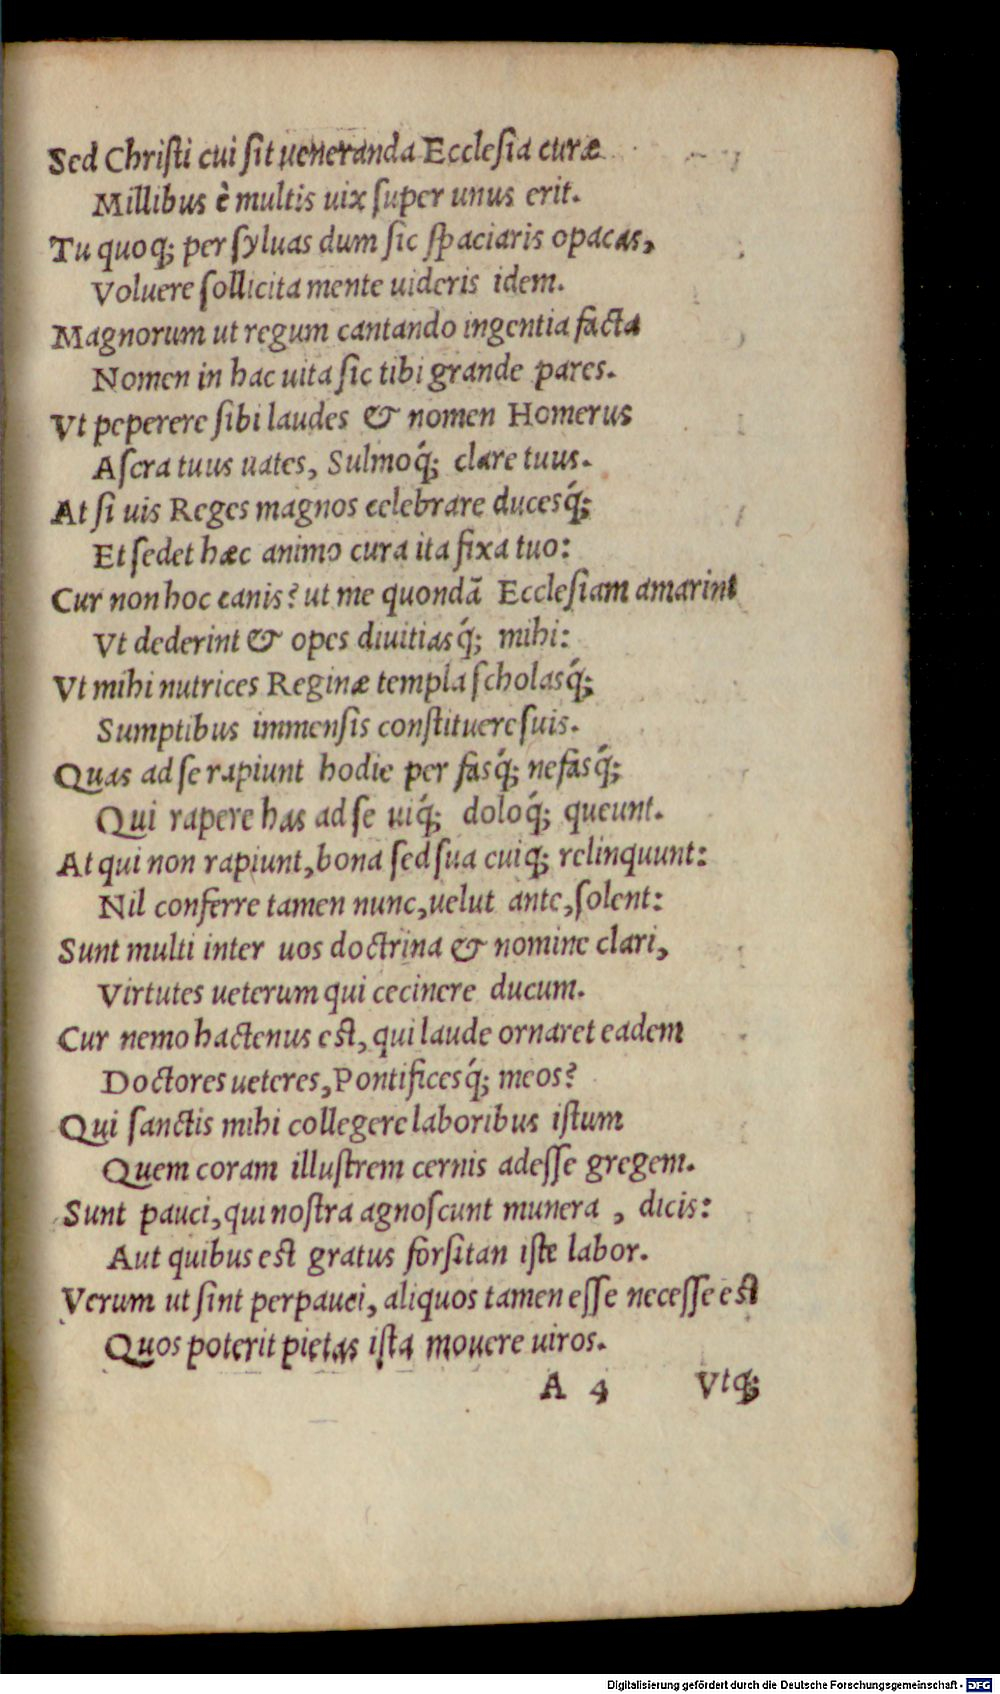 Sed Christi cui sit ueneranda Ecclesia curæ
Millibus è multis uix super unus erit.
Tu quoq; per syluas dum sic spaciaris opacas,
Voluere sollicita mente uideris idem.
Magnorum ut regum cantando ingentia facta
Nomen in hac uita sic tibi grande pares.
Vt peperere sibi laudes & nomen Homerus
Ascra tuus uates, Sulmoq́; clare tuus.
At si uis Reges magnos celebrare ducesq́;
Et sedet hæc animo cura ita fixa tuo:
Cur non hoc canis? ut me quondã Ecclesiam amarint
Vt dederint & opes diuitiasq́; mihi:
Vt mihi nutrices Reginæ templa scholasq́;
Sumptibus immensis constituere suis.
Quas ad se rapiunt hodie per fasq́; nefasq́;
Qui rapere has ad se uiq́; doloq́; queunt.
At qui non rapiunt, bona sed sua cuiq; relinquunt:
Nil conferre tamen nunc, uelut ante, solent:
Sunt multi inter uos doctrina & nomine clari,
Virtutes ueterum qui cecinere ducum.
Cur nemo hactenus est, qui laude ornaret eadem
Doctores ueteres, Pontificesq́; meos?
Qui sanctis mihi collegere laboribus istum
Quem coram illustrem cernis adesse gregem.
Sunt pauci, qui nostra agnoscunt munera , dicis:
Aut quibus est gratus forsitan iste labor.
Verum ut sint perpauci, aliquos tamen esse necesse est
Quos poterit pietas ista mouere uiros.
A 4 Vtq́;
Digitalisierung gefördert durch die Deutsche Forschungsgemeinschaft - DFG